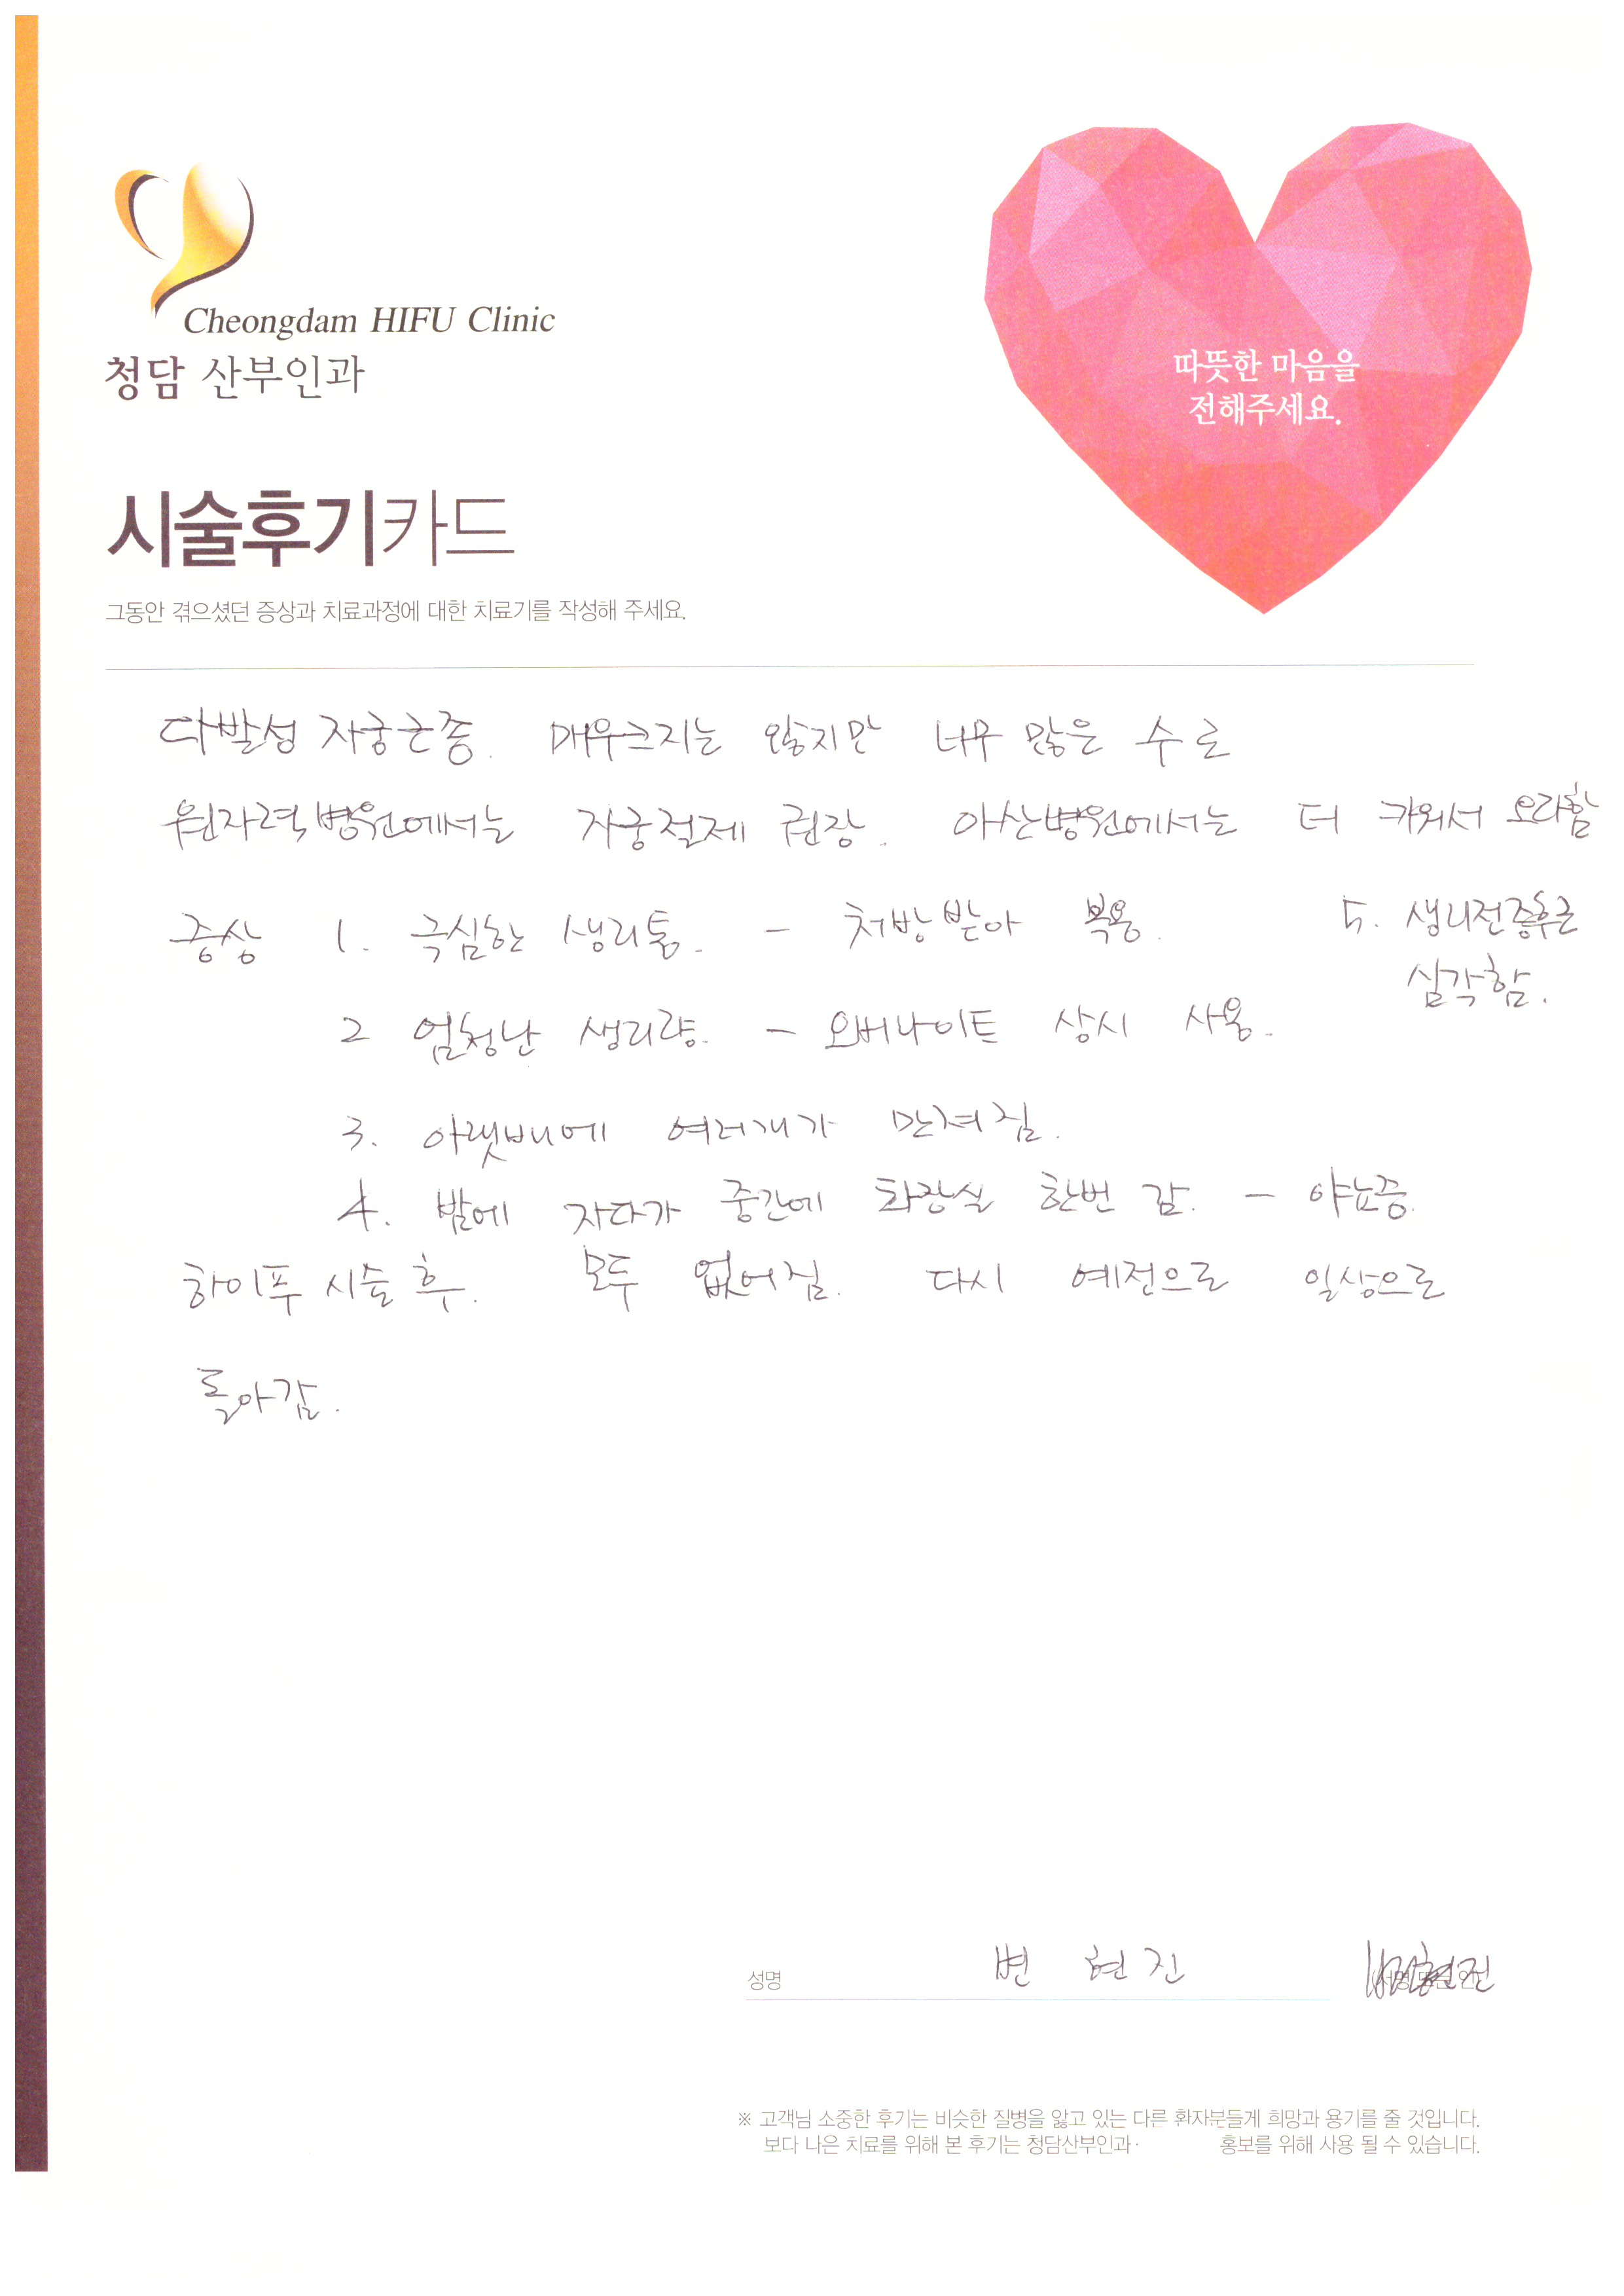 Cheongdam HIFU Clinic
청담 산부인과
따뜻한 마음을
전해주세요.
시술후기카드
그동안 겪으셨던 증상과 치료과정에 대한 치료기를 작성해 주세요.
다발성 자궁근종. 매우크지는 않지만 너무 많은 수로
원자력병원에서는 자궁적제 권장. 아산병원에서는 더 키워서 오라함
증상 1. 극심한 생리통. - 처방받아 복용.
5. 생리전증후군
심각함.
2 엄청난 생리량. - 오버나이트 상시 사용.
3. 아랫배에 여러개가 만져짐.
4. 밤에 자다가 중간에 화장실 한번 감. - 야뇨증.
하이푸 시술 후. 모두 없어짐. 다시 예전으로 일상으로
돌아감.
성명 변 현 진
※ 고객님 소중한 후기는 비슷한 질병을 앓고 있는 다른 환자분들게 희망과 용기를 줄 것입니다.
보다 나은 치료를 위해 본 후기는 청담산부인과· 홍보를 위해 사용 될 수 있습니다.